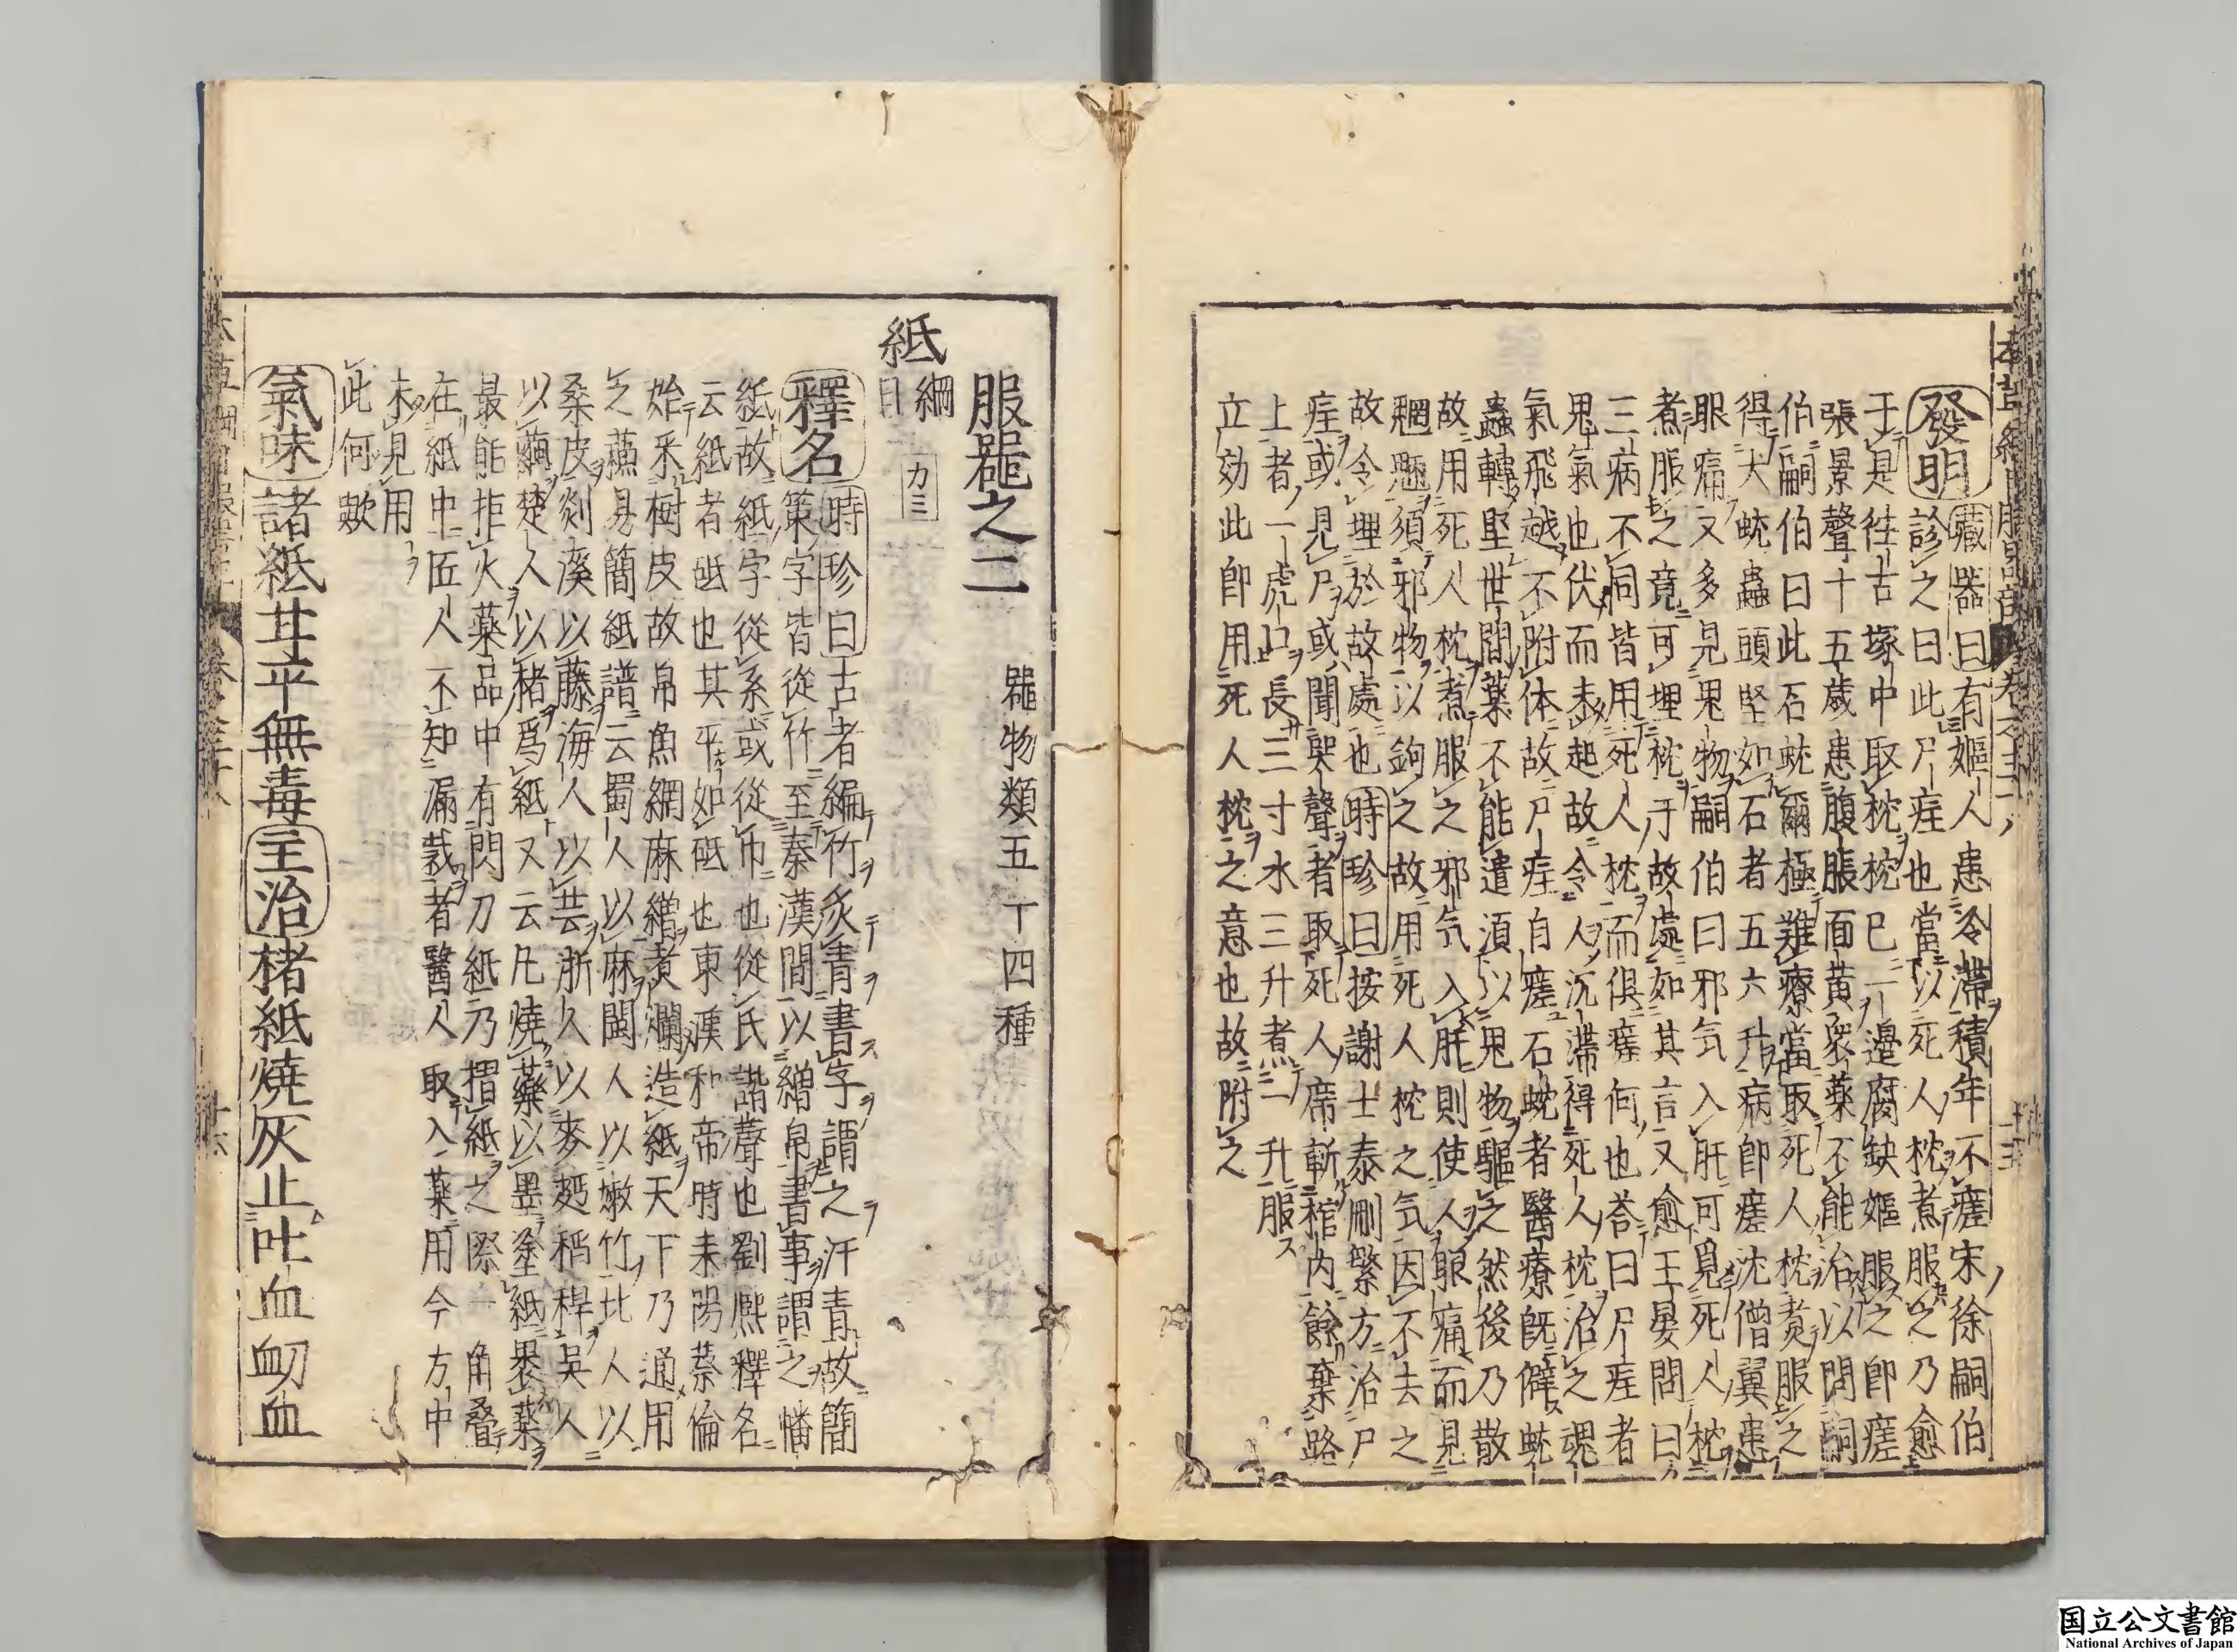 發明 藏器曰有嫗人患冷滯積年不瘥宋徐嗣伯
診之曰此尸疰也當以死人枕煮服之乃愈
于是徃古塚中取枕枕已一邊腐缺嫗服之卽瘥
張景聲十五歲患腹脹面黃衆藥不能治以問嗣
伯嗣伯曰此石蚘爾極難療當取死人枕煑服之
得大蚘蟲頭堅如石者五六升病卽瘥沈僧翼患
眼痛又多見鬼物嗣伯曰邪気入肝可覓死人枕
煮服之竟可埋枕于故處如其言又愈王晏問曰
三病不同皆用死人枕而俱瘥何也荅曰尸疰者
鬼氣也伏而未起故令人沉滯得死人枕治之魂
氣飛越不附体故尸疰自瘥石蚘者醫療既僻蚘
蟲轉堅世間藥不能遣須以鬼物驅之然後乃散
故用死人枕煮服之邪気入肝則使人眼痛而見
魍魎須邪物以鉤之故用死人枕之気因不去之
故令埋於故處也 時珍曰按謝士泰刪繁方治尸
疰或見尸或聞哭聲者取死人席斬棺內餘棄路
上者一虎口長三寸水三升煮一升服
立効此卽用死人枕之意也故附之
服噐之二 噐物類五十四種
紙 綱目 カミ
釋名 時珍曰古者編竹炙青書字謂之汗青故簡
策字皆從竹至秦漢間以繒帛書事謂之幡
紙故紙字從糸或從巾也從氏諧聲也劉熈釋名
云紙者砥也其平如砥也東漢和帝時耒陽蔡倫
始釆樹皮故帛魚網麻繒煑爛造紙天下乃通用
之蘇易簡紙譜云蜀人以麻閩人以嫩竹北人以
桑皮剡溪以藤海人以苔浙人以麥麪稻稈吳人
以繭楚人以楮爲紙又云凡燒藥以墨塗紙裹藥
最能拒火藥品中有閃刀紙乃摺紙之際一角叠
在紙中匠人不知漏裁者醫人取入藥用今方中
未見用
此何歟
氣味 諸紙甘平無毒 主治 楮紙燒灰止吐血衂血